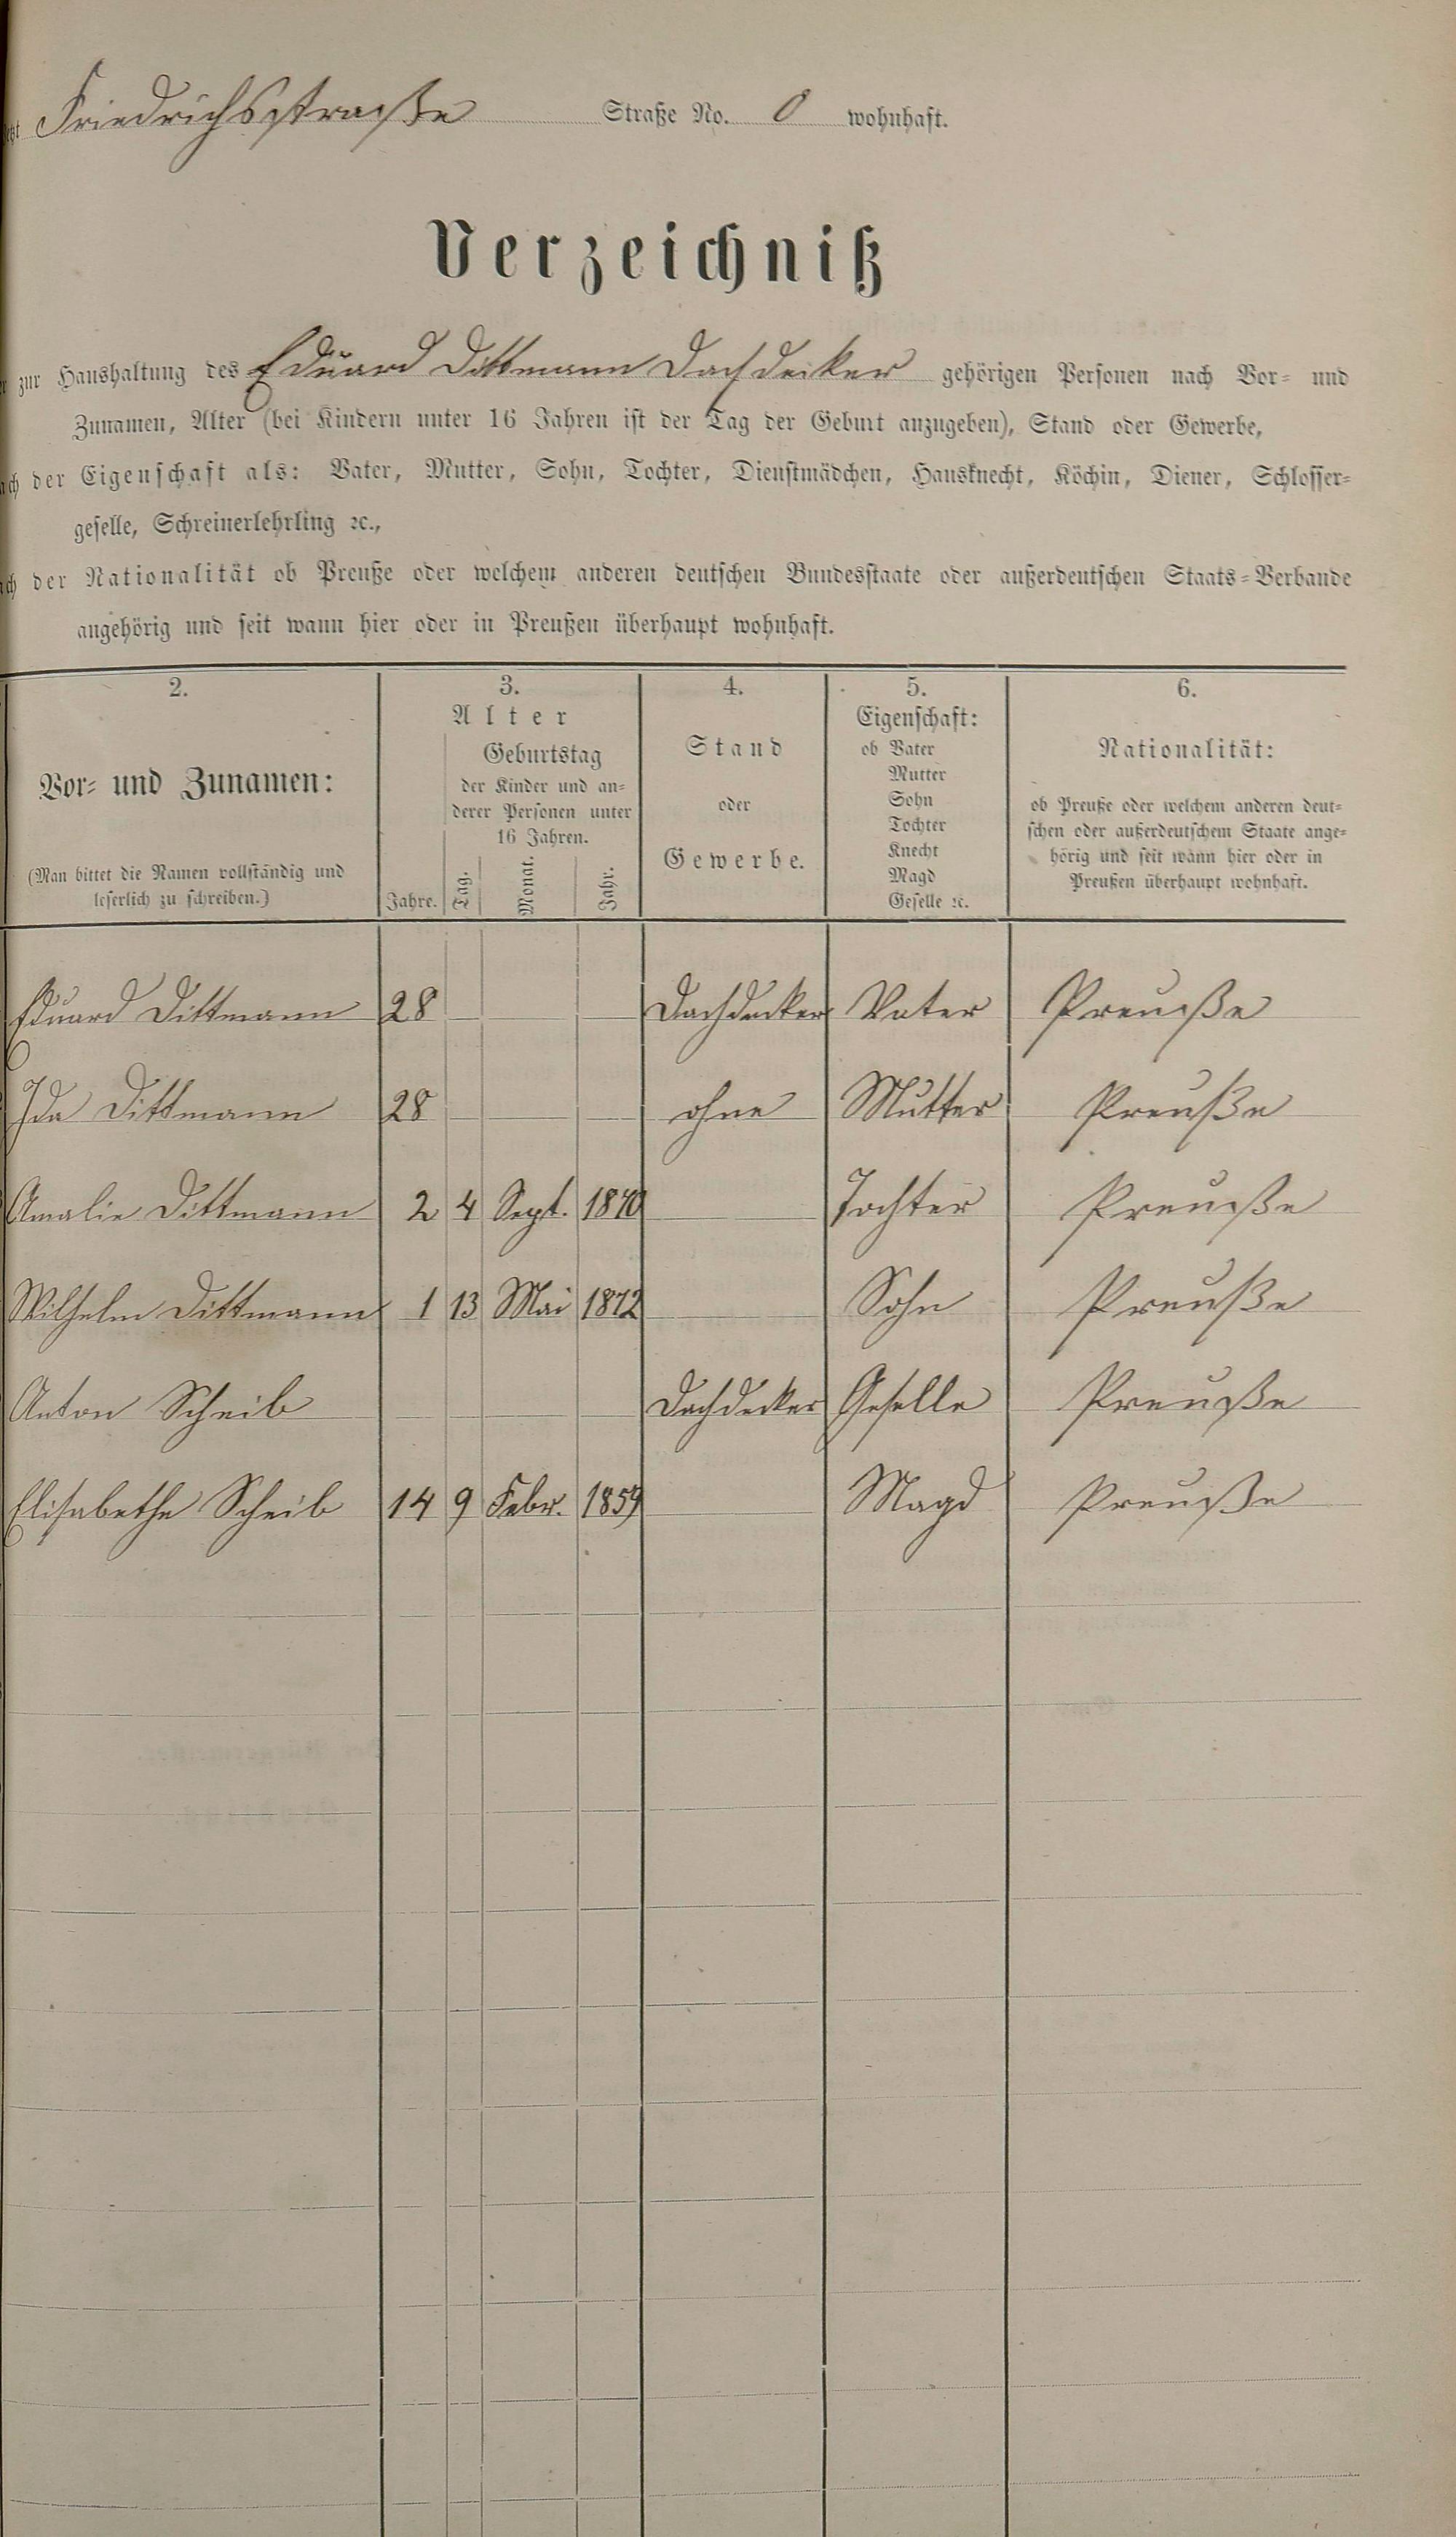 Friedrichsstraße Straße No. 0 wohnhaft.
Verzeichniß
zur Haushaltung des Eduard Dittmann Dachdecker gehörigen Personen nach Vor- und
Zunamen, Alter (bei Kindern unter 16 Jahren ist der Tag der Geburt anzugeben), Stand oder Gewerbe,
der Eigenschaft als: Vater, Mutter, Sohn, Tochter, Dienstmädchen, Hausknecht, Köchin, Diener, Schlosser-
geselle, Schreinerlehrling ꝛc.,
der Nationalität ob Preuße oder welchem anderen deutschen Bundesstaate oder außerdeutschen Staats-Verbande
angehörig und seit wann hier oder in Preußen überhaupt wohnhaft.
2. 3. 4. 5. 6.
Vor- und Zunamen:
(Man bittet die Namen vollständig und
leserlich zu schreiben.)
Alter
Geburtstag
der Kinder und an-
derer Personen unter
16 Jahren.
Jahre. Tag. Monat. Jahr.
Stand
oder
Gewerbe.
Eigenschaft:
ob Vater
Mutter
Sohn
Tochter
Knecht
Magd
Geselle ꝛc.
Nationalität:
ob Preuße oder welchem anderen deut-
schen oder außerdeutschem Staate ange-
hörig und seit wann hier oder in
Preußen überhaupt wohnhaft.
Eduard Dittmann 28 Dachdecker Vater Preuße
Ida Dittmann 28 ohne Mutter Preuße
Amalie Dittmann 2 4 Sept. 1870 Tochter Preuße
Wilhelm Dittmann 1 13 Mai 1872 Sohn Preuße
Anton Scheib Dachdecker Geselle Preuße
Elisabethe Scheib 14 9 Febr. 1859 Magd Preuße